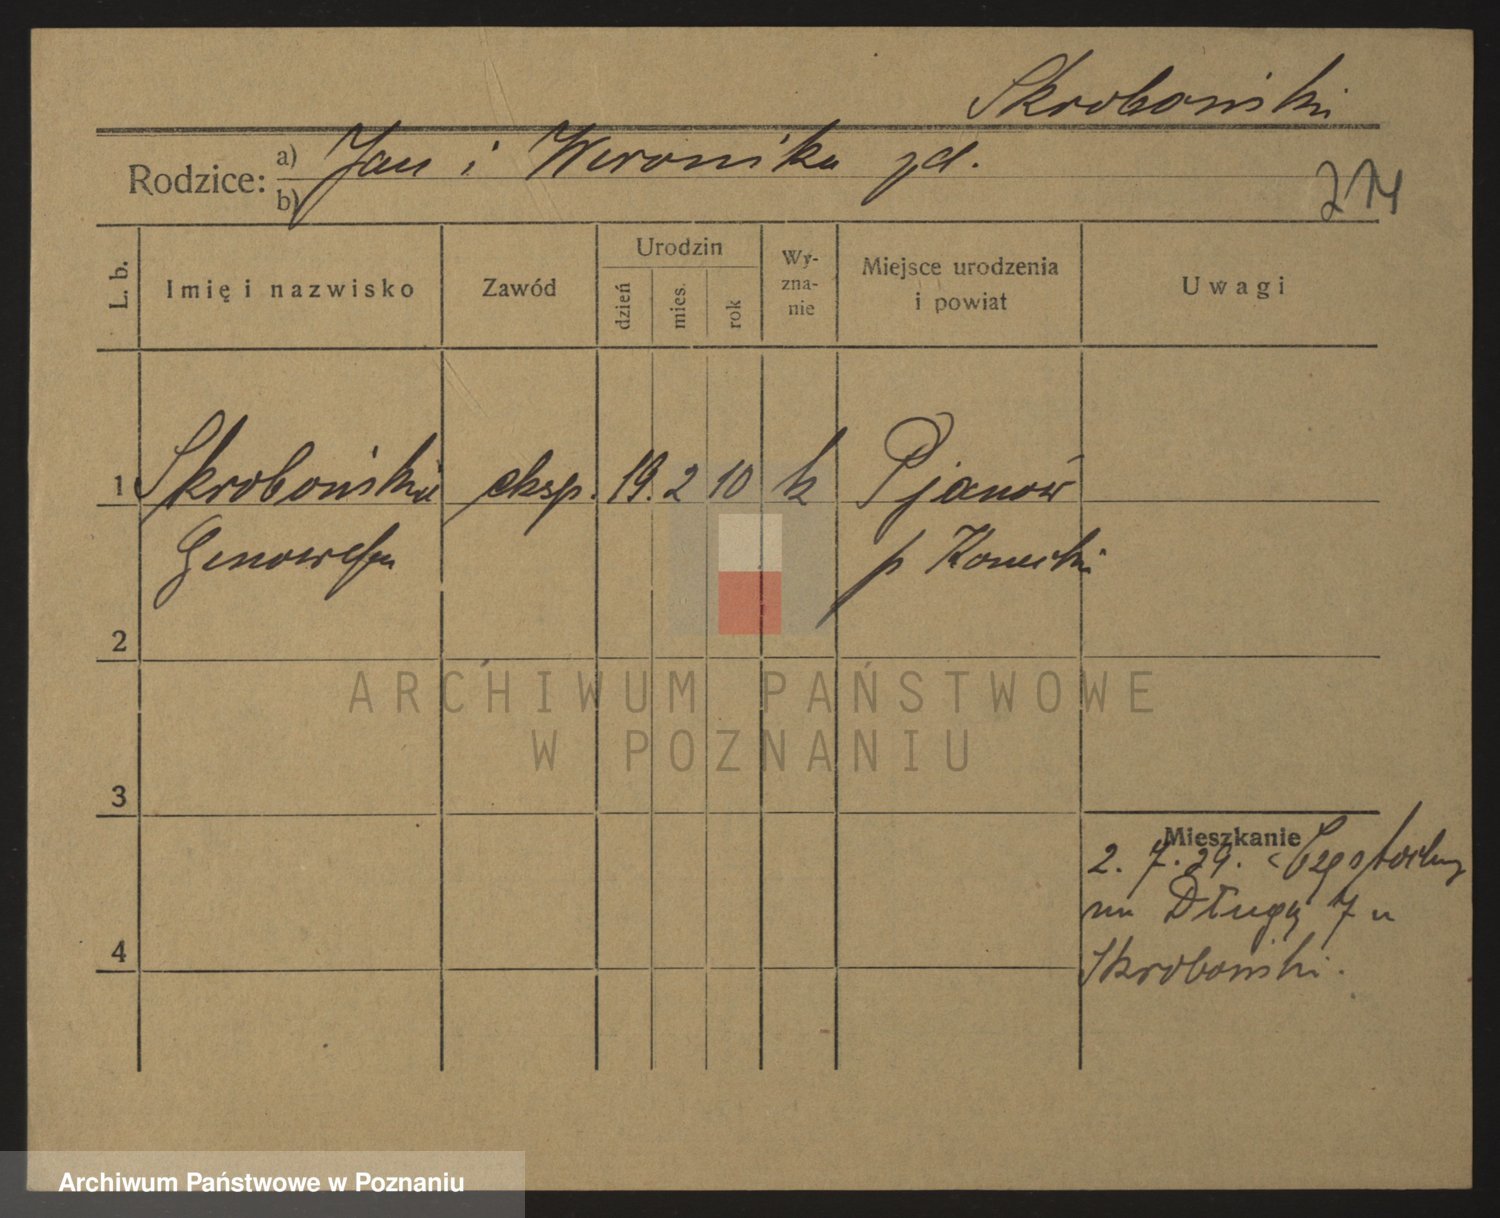 Skroboński
Rodzice: a) Jan i Weronika jd.
b)
214
L. b. Imię i nazwisko Zawód Urodzin dzień mies. rok Wy-zna-nie Miejsce urodzenia i powiat Uwagi
1 Skrobońska eksp. 19. 2 10 k Pjanów
Genowefa p Konecki
2
3
Mieszkanie
2. 7. 29. Częstochowy
na Długą 7 u
4
Skroboński.
ARCHIWUM PAŃSTWOWE
W POZNANIU
Archiwum Państwowe w Poznaniu